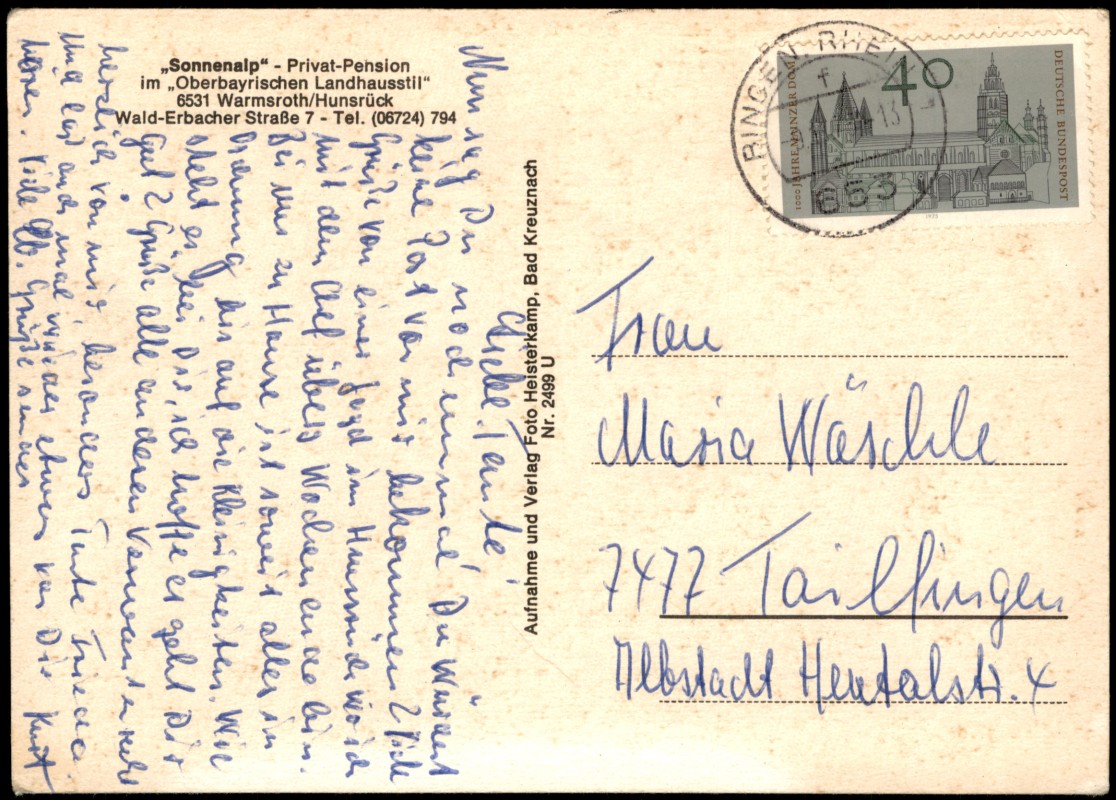 „Sonnenalp“ - Privat-Pension
im „Oberbayrischen Landhausstil“
6531 Warmsroth/Hunsrück
Wald-Erbacher Straße 7 - Tel. (06724) 794
Liebe Tante!
Nun sag Du noch einmal Du würdest
keine Post von mir bekommen? Viele
Grüße von einer Jagd im Hunsrück wo ich
mit dem Chef übers Wochenende bin.
Bei uns zu Hause ist soweit alles in
Ordnung bis auf die Kleinigkeiten. Wie
steht es bei Dir, ich hoffe es geht Dir
Gut? Grüße alle anderen Verwandten recht
herzlich von mir besonders Tante Frieda.
Und laß auch mal wieder etwas von Dir
hören. Viele lb. Grüße sendet Kurt
Aufnahme und Verlag Foto Heisterkamp, Bad Kreuznach
Nr. 2499 U
BINGEN, RHEIN
f
13
653
1000 JAHRE MAINZER DOM
40
DEUTSCHE BUNDESPOST
1975
Frau
Maria Wäschle
7477 Tailfingen
Albstadt Heutalstr. 4